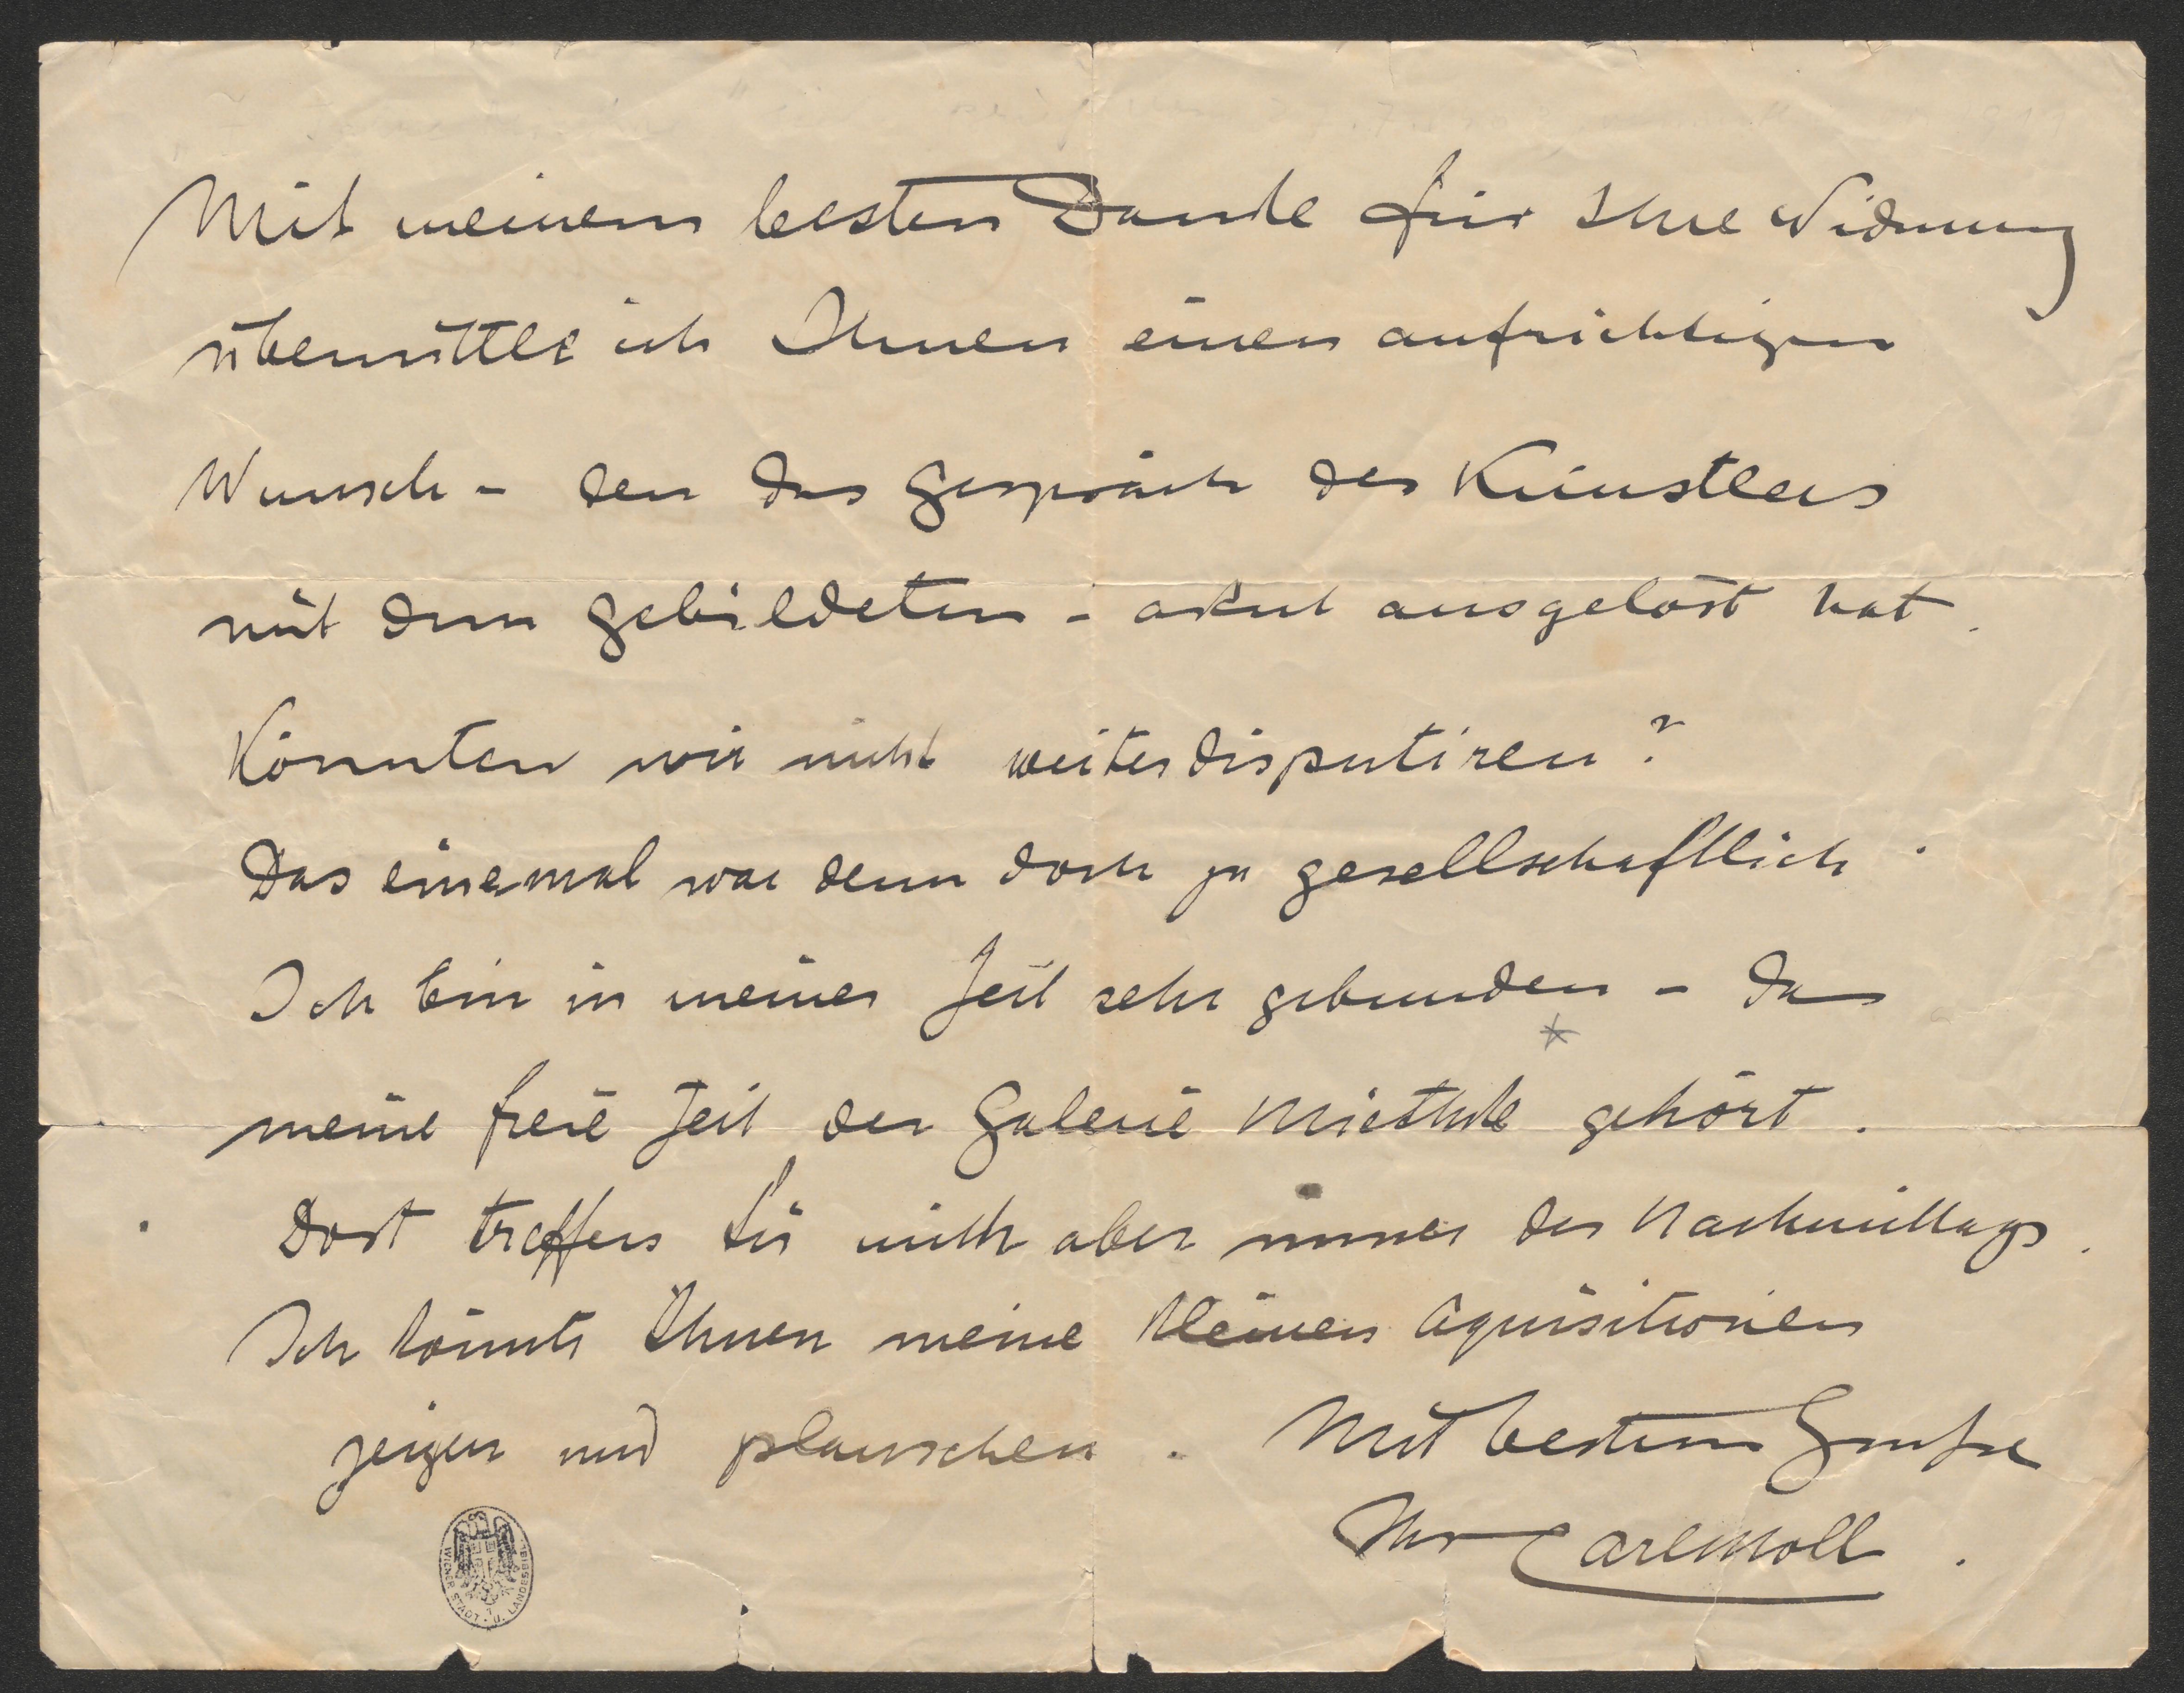 Mit meinem besten Danke für Ihre Widmung
übermittle ich Ihnen einen aufrichtigen
Wunsch – den das Gespräch des Künstlers
mit dem Gebildeten – akut ausgelöst hat.
Könnten wir nicht weiterdisputiren?
Das einemal war denn doch zu gesellschaftlich.
Ich bin in meiner Zeit sehr gebunden – da
meine freie Zeit der Galerie Miethke gehört.
Dort treffen Sie mich aber immer des Nachmittags.
Ich könnte Ihnen meine kleinen Aquisitionen
zeigen und plauschen. Mit bestem Gruße
Ihr Carl Moll.
WIENER STADT- U. LANDESBIBL.